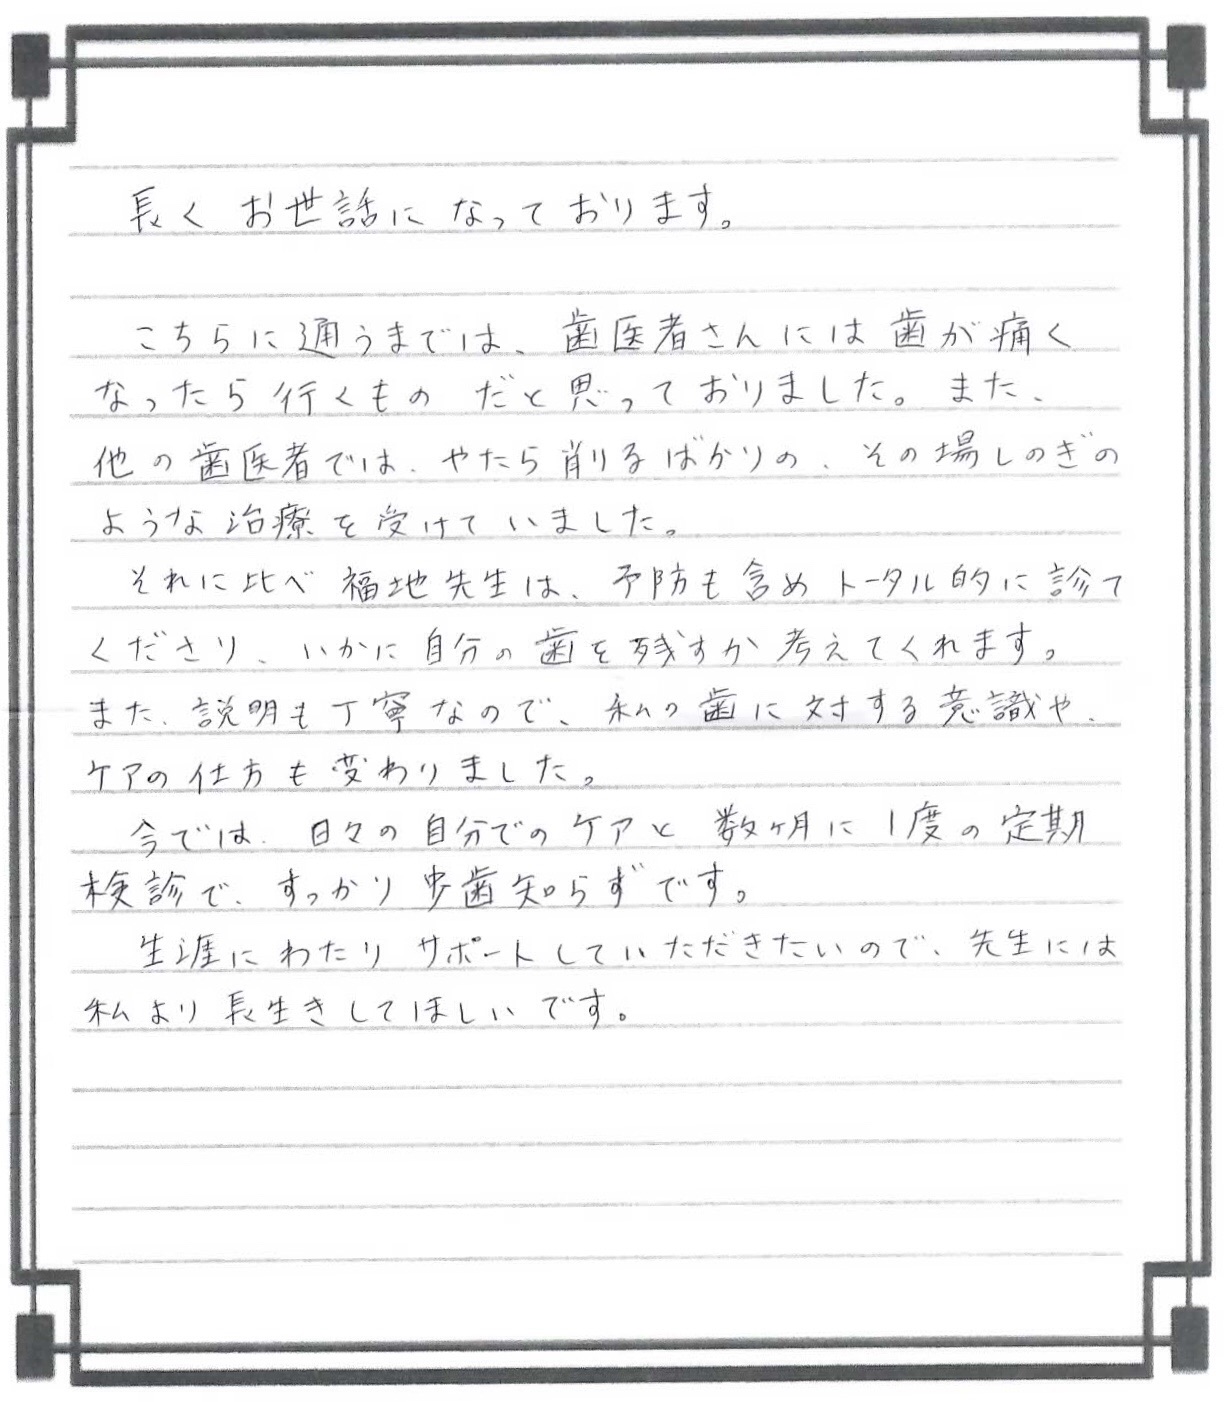 長くお世話になっております。
こちらに通うまでは、歯医者さんには歯が痛く
なったら行くものだと思っておりました。また、
他の歯医者では、やたら削るばかりの、その場しのぎの
ような治療を受けていました。
それに比べ福地先生は、予防も含めトータル的に診て
くださり、いかに自分の歯を残すか考えてくれます。
また、説明も丁寧なので、私の歯に対する意識や、
ケアの仕方も変わりました。
今では、日々の自分でのケアと数ヶ月に1度の定期
検診で、すっかり歩歯知らずです。
生涯にわたりサポートしていただきたいので、先生には
私より長生きしてほしいです。